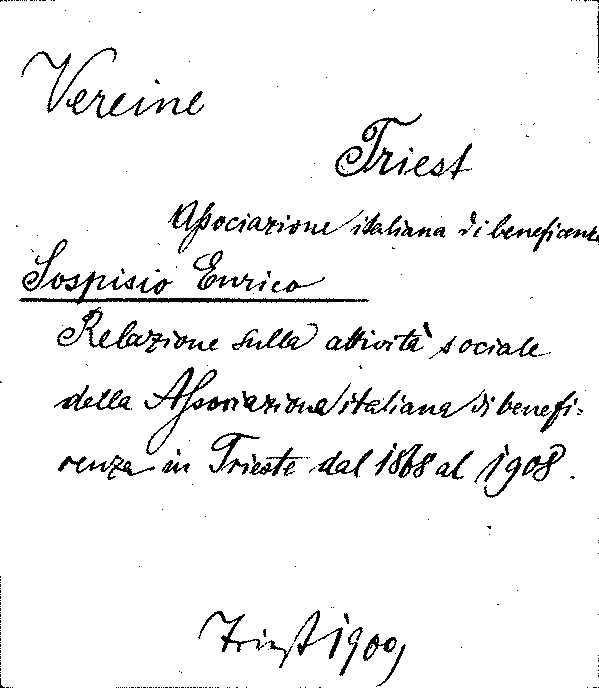 Vereine
Triest
Associazione italiana di beneficenza
Sospisio Enrico
Relazione sulla attività sociale
della Associazione italiana di benefi-
cenza in Trieste dal 1868 al 1908.
Triest 1909